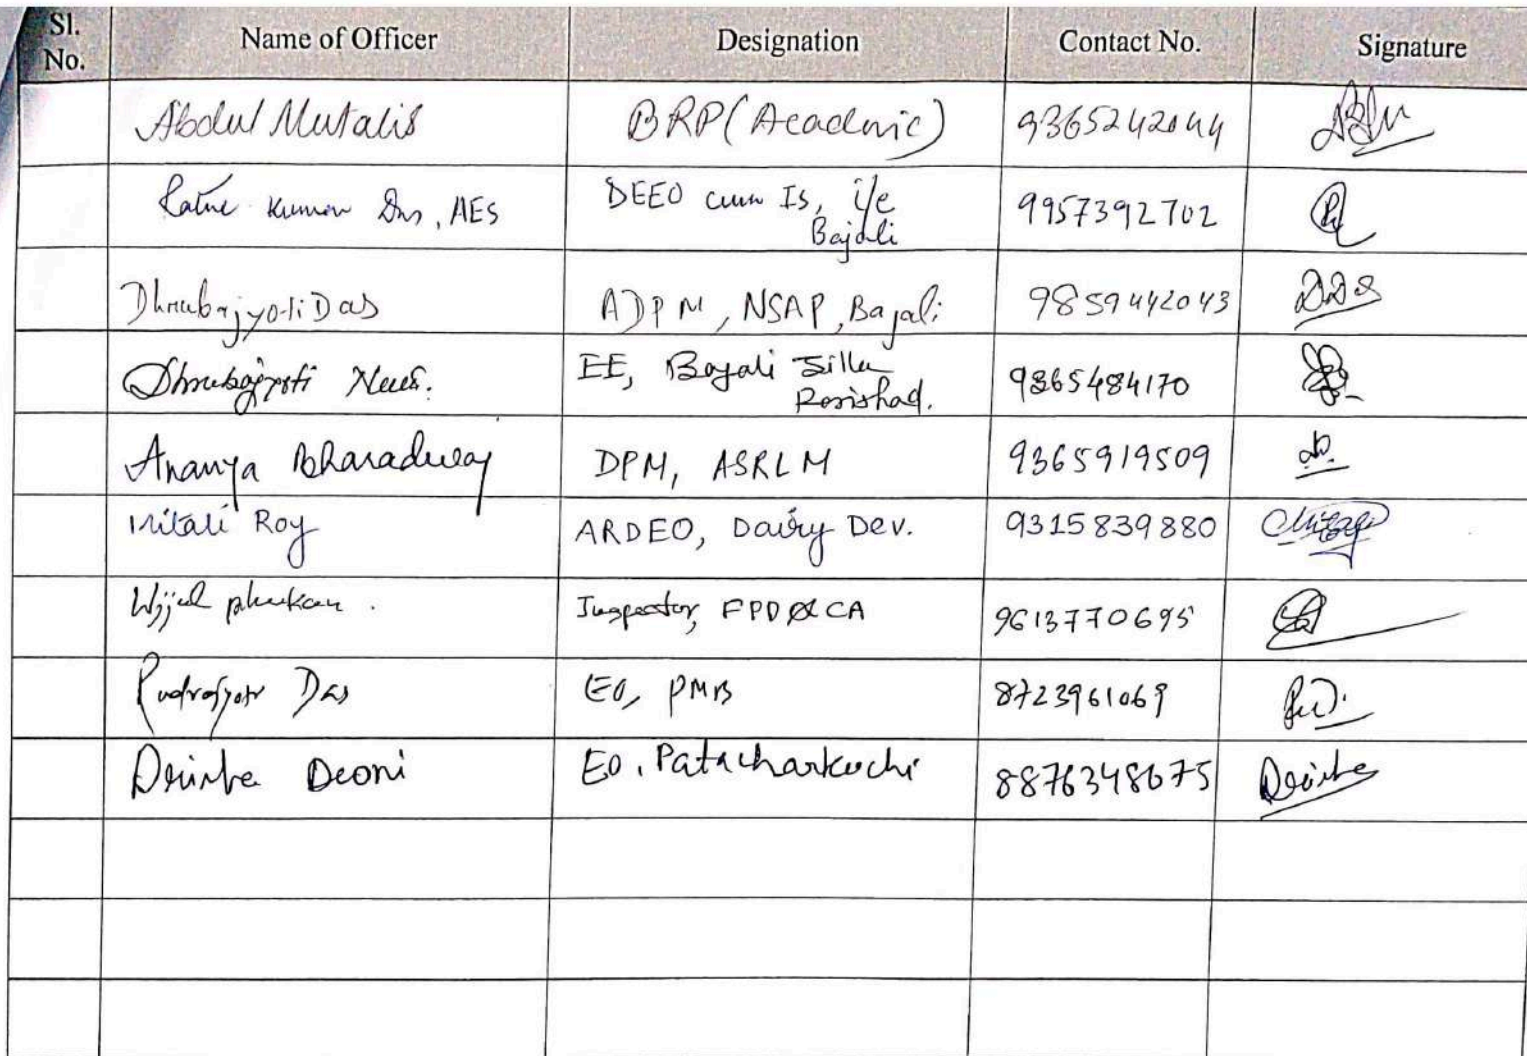 Sl. No. Name of Officer Designation Contact No. Signature
Abdul Mutalib BRP (Academic) 9365242044
Ratna Kumar Das, AES DEEO cum Is, i/c 9957392702
Bajali
Dhrubajyoti Das ADPM, NSAP, Bajali 9859442043
Dhrubajyoti EE, Bajali Zilla 9365484170
Parishad.
Ananya Bharadwaj DPM, ASRLM 9365919509
Mitali Roy ARDEO, Dairy Dev. 9315839880
phukan. Inspector, FPD & CA 9613770695
Rudrajyoti Das EO, PMB 8723961069
Deoni EO, Patacharkuchi 8876348675